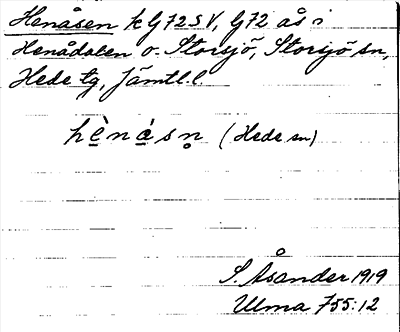 Henåsen k G72SV, G72 ås i
Henådalen o. Storsjö, Storsjö sn,
Hede tg, Jämtl. l.
hènásn̥ (Hede sn)
S. Åsander 1919
Ulma 755:12